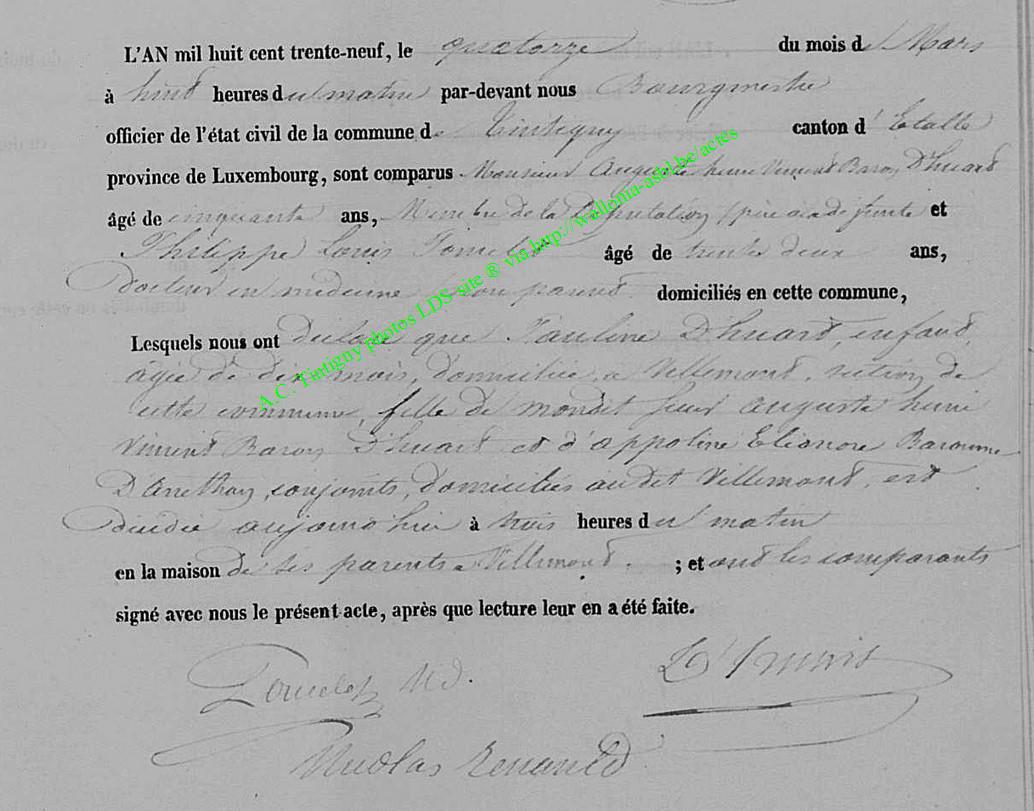 L'AN mil huit cent trente-neuf, le quatorze du mois de Mars
à huit heures du matin par-devant nous Bourgmestre
officier de l'état civil de la commune de Tintigny canton d'Etalle
province de Luxembourg, sont comparus Monsieur Auguste henri Vincent Baron D'huart
âgé de cinquante ans, Membre de la Députation, père de la dejunte et
Philippe Louis âgé de trente deux ans,
Docteur en médecine domiciliés en cette commune,
Lesquels nous ont déclaré que Pauline D'huart, enfant,
âgée de dix mois, domiciliée a Villemont, section de
cette commune, fille de mondit sieur auguste henri
Vincent Baron D'huart et d'appoline Elionore Baronne
D'Anethan, conjoints, domiciliés audit Villemont, est
décédée aujourd'hui à trois heures du matin
en la maison de ses parents a Villemont. ; et ont les comparants
signé avec nous le présent acte, après que lecture leur en a été faite.
Nicolas Renauld
A.C. Tintigny photos LDS-site ® via http://wallonia-asbl.be/actes